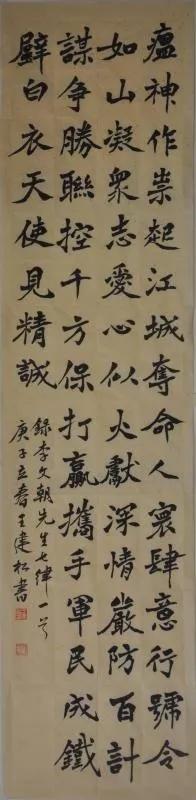 瘟神作祟起江城奪命人寰肆意行號令
如山凝衆志愛心似火獻深情嚴防百計
謀爭勝聯控千方保打贏攜手軍民成鐵
壁白衣天使見精誠
錄李文朝先生七律一首
庚子立春王健松書